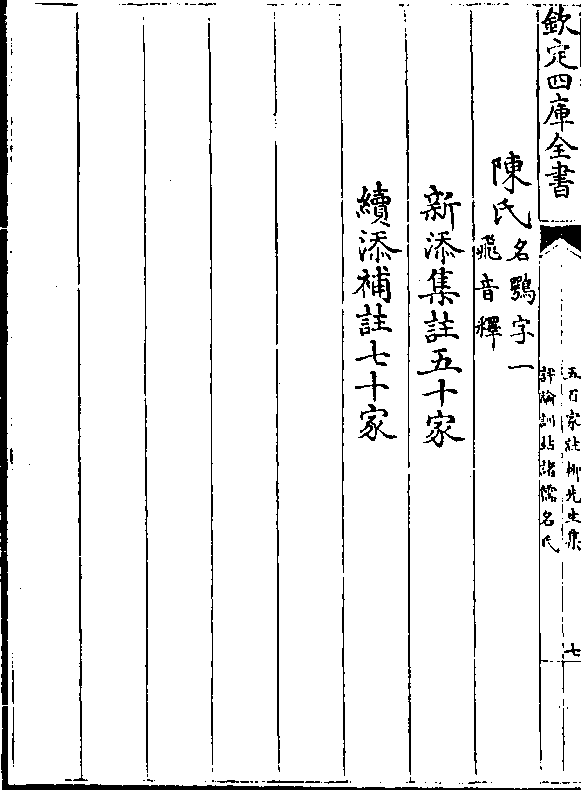 欽定四庫全書
五百家註柳先生集
評論訓詁諸儒名氏
七
陳氏名鶚字一
飛音釋
新添集註五十家
續添補註七十家